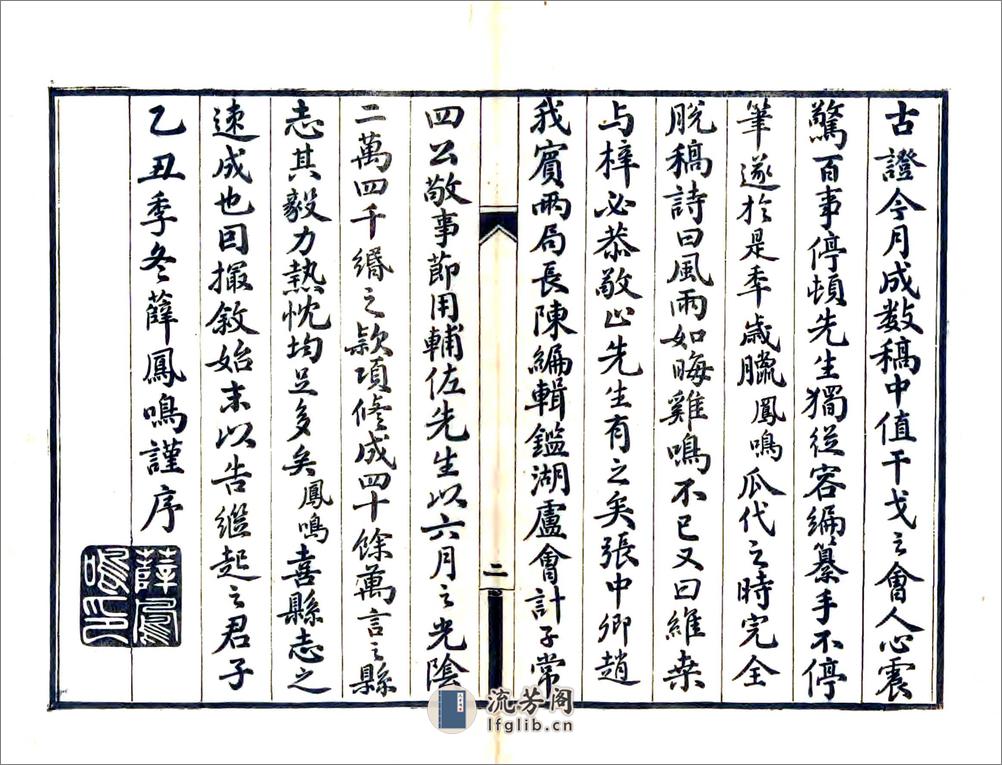 古證今月成数稿中值干戈之會人心震
驚百事停頓先生獨從容編纂手不停
筆遂於是季歲臘鳳鳴瓜代之時完全
脫稿詩曰風雨如晦雞鳴不已又曰維桒
与梓必恭敬止先生有之矣張中卿趙
我賓兩局長陳編輯鑑湖盧會計子常
四公敬事節用輔佐先生以六月之光陰
二萬四千緡之款項修成四十餘萬言之縣
志其毅力熱忱均足多矣鳳鳴喜縣志之
速成也因撮敘始末以告繼起之君子
乙丑季冬薛鳳鳴謹序
薛鳳鳴印
二
流芳阁
lfglib.cn